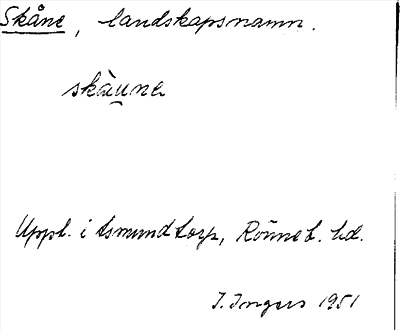 Skåne, landskapsnamn.
skàu̯nα
Uppt. i Asmundtorp, Rönneb. hd.
I. Ingers 1951